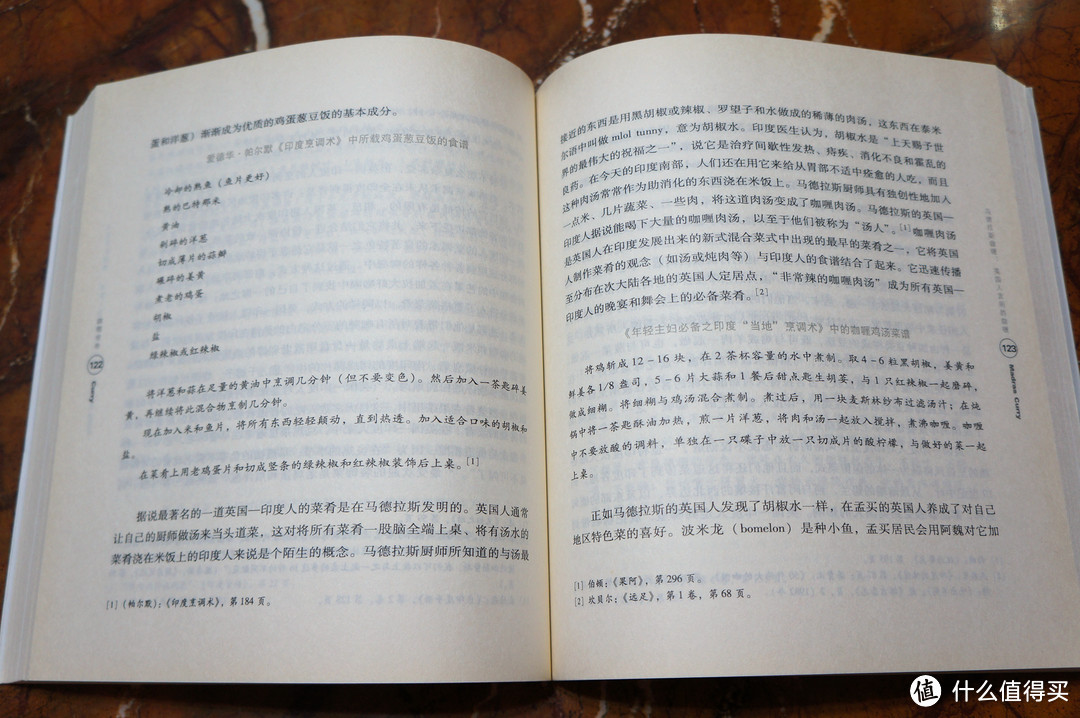 蛋和洋葱）渐渐成为优质的鸡蛋葱豆饭的基本成分。
爱德华·帕尔默《印度烹调术》中所载鸡蛋葱豆饭的食谱
冷却的熟鱼（鱼片更好）
熟的巴特那米
黄油
剁碎的洋葱
切成薄片的蒜瓣
碾碎的姜黄
煮老的鸡蛋
胡椒
盐
绿辣椒或红辣椒
将洋葱和蒜在足量的黄油中烹调几分钟（但不要变色）。然后加入一茶匙碎姜
黄，再继续将此混合物烹制几分钟。
现在加入米和鱼片，将所有东西轻轻颠动，直到热透。加入适合口味的胡椒和
盐。
在菜肴上用老鸡蛋片和切成竖条的绿辣椒和红辣椒装饰后上桌。[1]
据说最著名的一道英国—印度人的菜肴是在马德拉斯发明的。英国人通常
让自己的厨师做汤来当头道菜，这对将所有菜肴一股脑全端上桌、将有汤水的
菜肴浇在米饭上的印度人来说是个陌生的概念。马德拉斯厨师所知道的与汤最
[1]（帕尔默）：《印度烹调术》，第 184 页。
122
Curry
接近的东西是用黑胡椒或辣椒、罗望子和水做成的稀薄的肉汤，这东西在泰米
尔语中叫做 mlol tunny，意为胡椒水。印度医生认为，胡椒水是“上天赐予世
界的最伟大的祝福之一”，说它是治疗间歇性发热、痔疾、消化不良和霍乱的
良药。在今天的印度南部，人们还在用它来给从胃部不适中痊愈的人吃，而且
这种肉汤常常作为助消化的东西浇在米饭上。马德拉斯厨师具有独创性地加人
一点米、几片蔬菜、一些肉，将这道肉汤变成了咖喱肉汤。马德拉斯的英国—
印度人据说能喝下大量的咖喱肉汤，以至于他们被称为“汤人”。[1]咖喱肉汤
是英国人在印度发展出来的新式混合菜式中出现的最早的菜肴之一，它将英国
人制作菜肴的观念（如汤或炖肉等）与印度人的食谱结合了起来。它迅速传播
至分布在次大陆各地的英国人定居点，“非常辣的咖喱肉汤”成为所有英国—
印度人的晚宴和舞会上的必备菜肴。[2]
《年轻主妇必备之印度“当地”烹调术》中的咖喱鸡汤菜谱
将鸡斩成 12－16 块，在 2 茶杯容量的水中煮制。取 4－6 粒黑胡椒，姜黄和
鲜姜各 1/8 盎司，5－6 片大蒜和 1 餐后甜点匙生胡荽，与 1 只红辣椒一起磨碎，
做成细糊。将细糊与鸡汤混合煮制。煮过后，用一块麦斯林纱布过滤汤汁；在炖
锅中将一茶匙酥油加热，煎一片洋葱，将肉和汤一起放入搅拌，煮沸咖喱。咖喱
中不要放酸的调料，单独在一只碟子中放一只切成片的酸柠檬，与做好的菜一起
上桌。
正如马德拉斯的英国人发现了胡椒水一样，在孟买的英国人养成了对自己
地区特色菜的喜好。波米龙（bomelon）是种小鱼，孟买居民会用阿魏对它加
[1] 伯顿：《果阿》，第 296 页。
[2] 坎贝尔：《远足》，第 1 卷，第 68 页。
123
Madras Curry
值 什么值得买